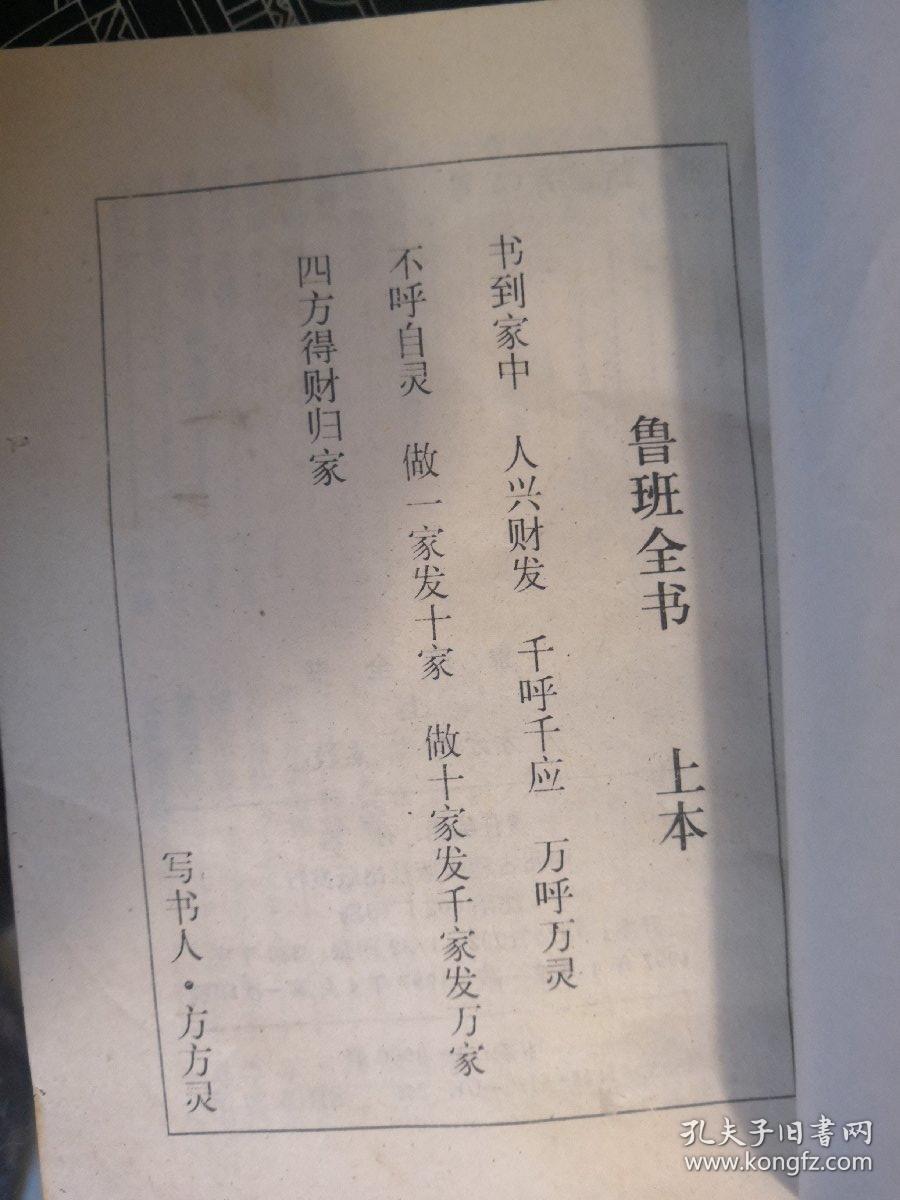 鲁班全书 上本
书到家中 人兴财发 千呼千应 万呼万灵
不呼自灵 做一家发十家 做十家发千家发万家
四方得财归家
写书人·方方灵
孔夫子旧书网
www.kongfz.com